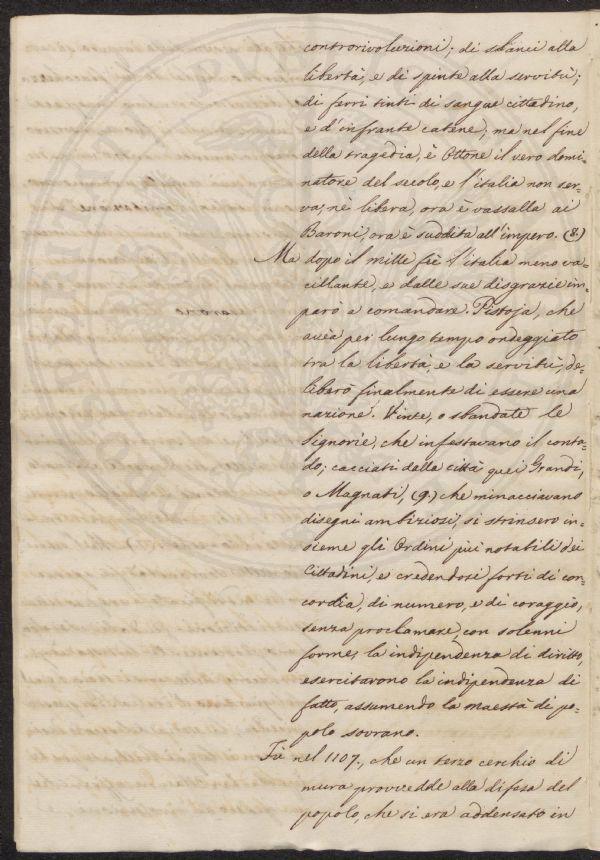 controrivoluzioni; di slanci alla
libertà, e di spinte alla servitù;
di ferri tinti di sangue cittadino,
e d'infrante catene; ma nel fine
della tragedia, è Ottone il vero domi-
natore del secolo, e l'italia non ser-
va, nè libera, ora è vassalla ai
Baroni, ora è suddita all'impero. (8.)
Ma dopo il mille fù l'italia meno va-
cillante, e dalle sue disgrazie im-
parò a comandare. Pistoja, che
avea per lungo tempo ondeggiato
tra la libertà, e la servitù, de-
liberò finalmente di essere una
nazione. Vinte, o sbandate le
Signorie, che infestavano il conta-
do; cacciati dalla città quei Grandi,
o Magnati, (9.) che minacciavano
disegni ambiziosi, si strinsero in-
sieme gli Ordini più notabili dei
Cittadini, e credendosi forti di con-
cordia, di numero, e di coraggio,
senza proclamare, con solenni
forme, la indipendenza di diritto,
esercitavono la indipendenza di
fatto, assumendo la maestà di po-
polo sovrano.
Fù nel 1107., che un terzo cerchio di
mura provvedde alla difesa del
popolo, che si era addensato in